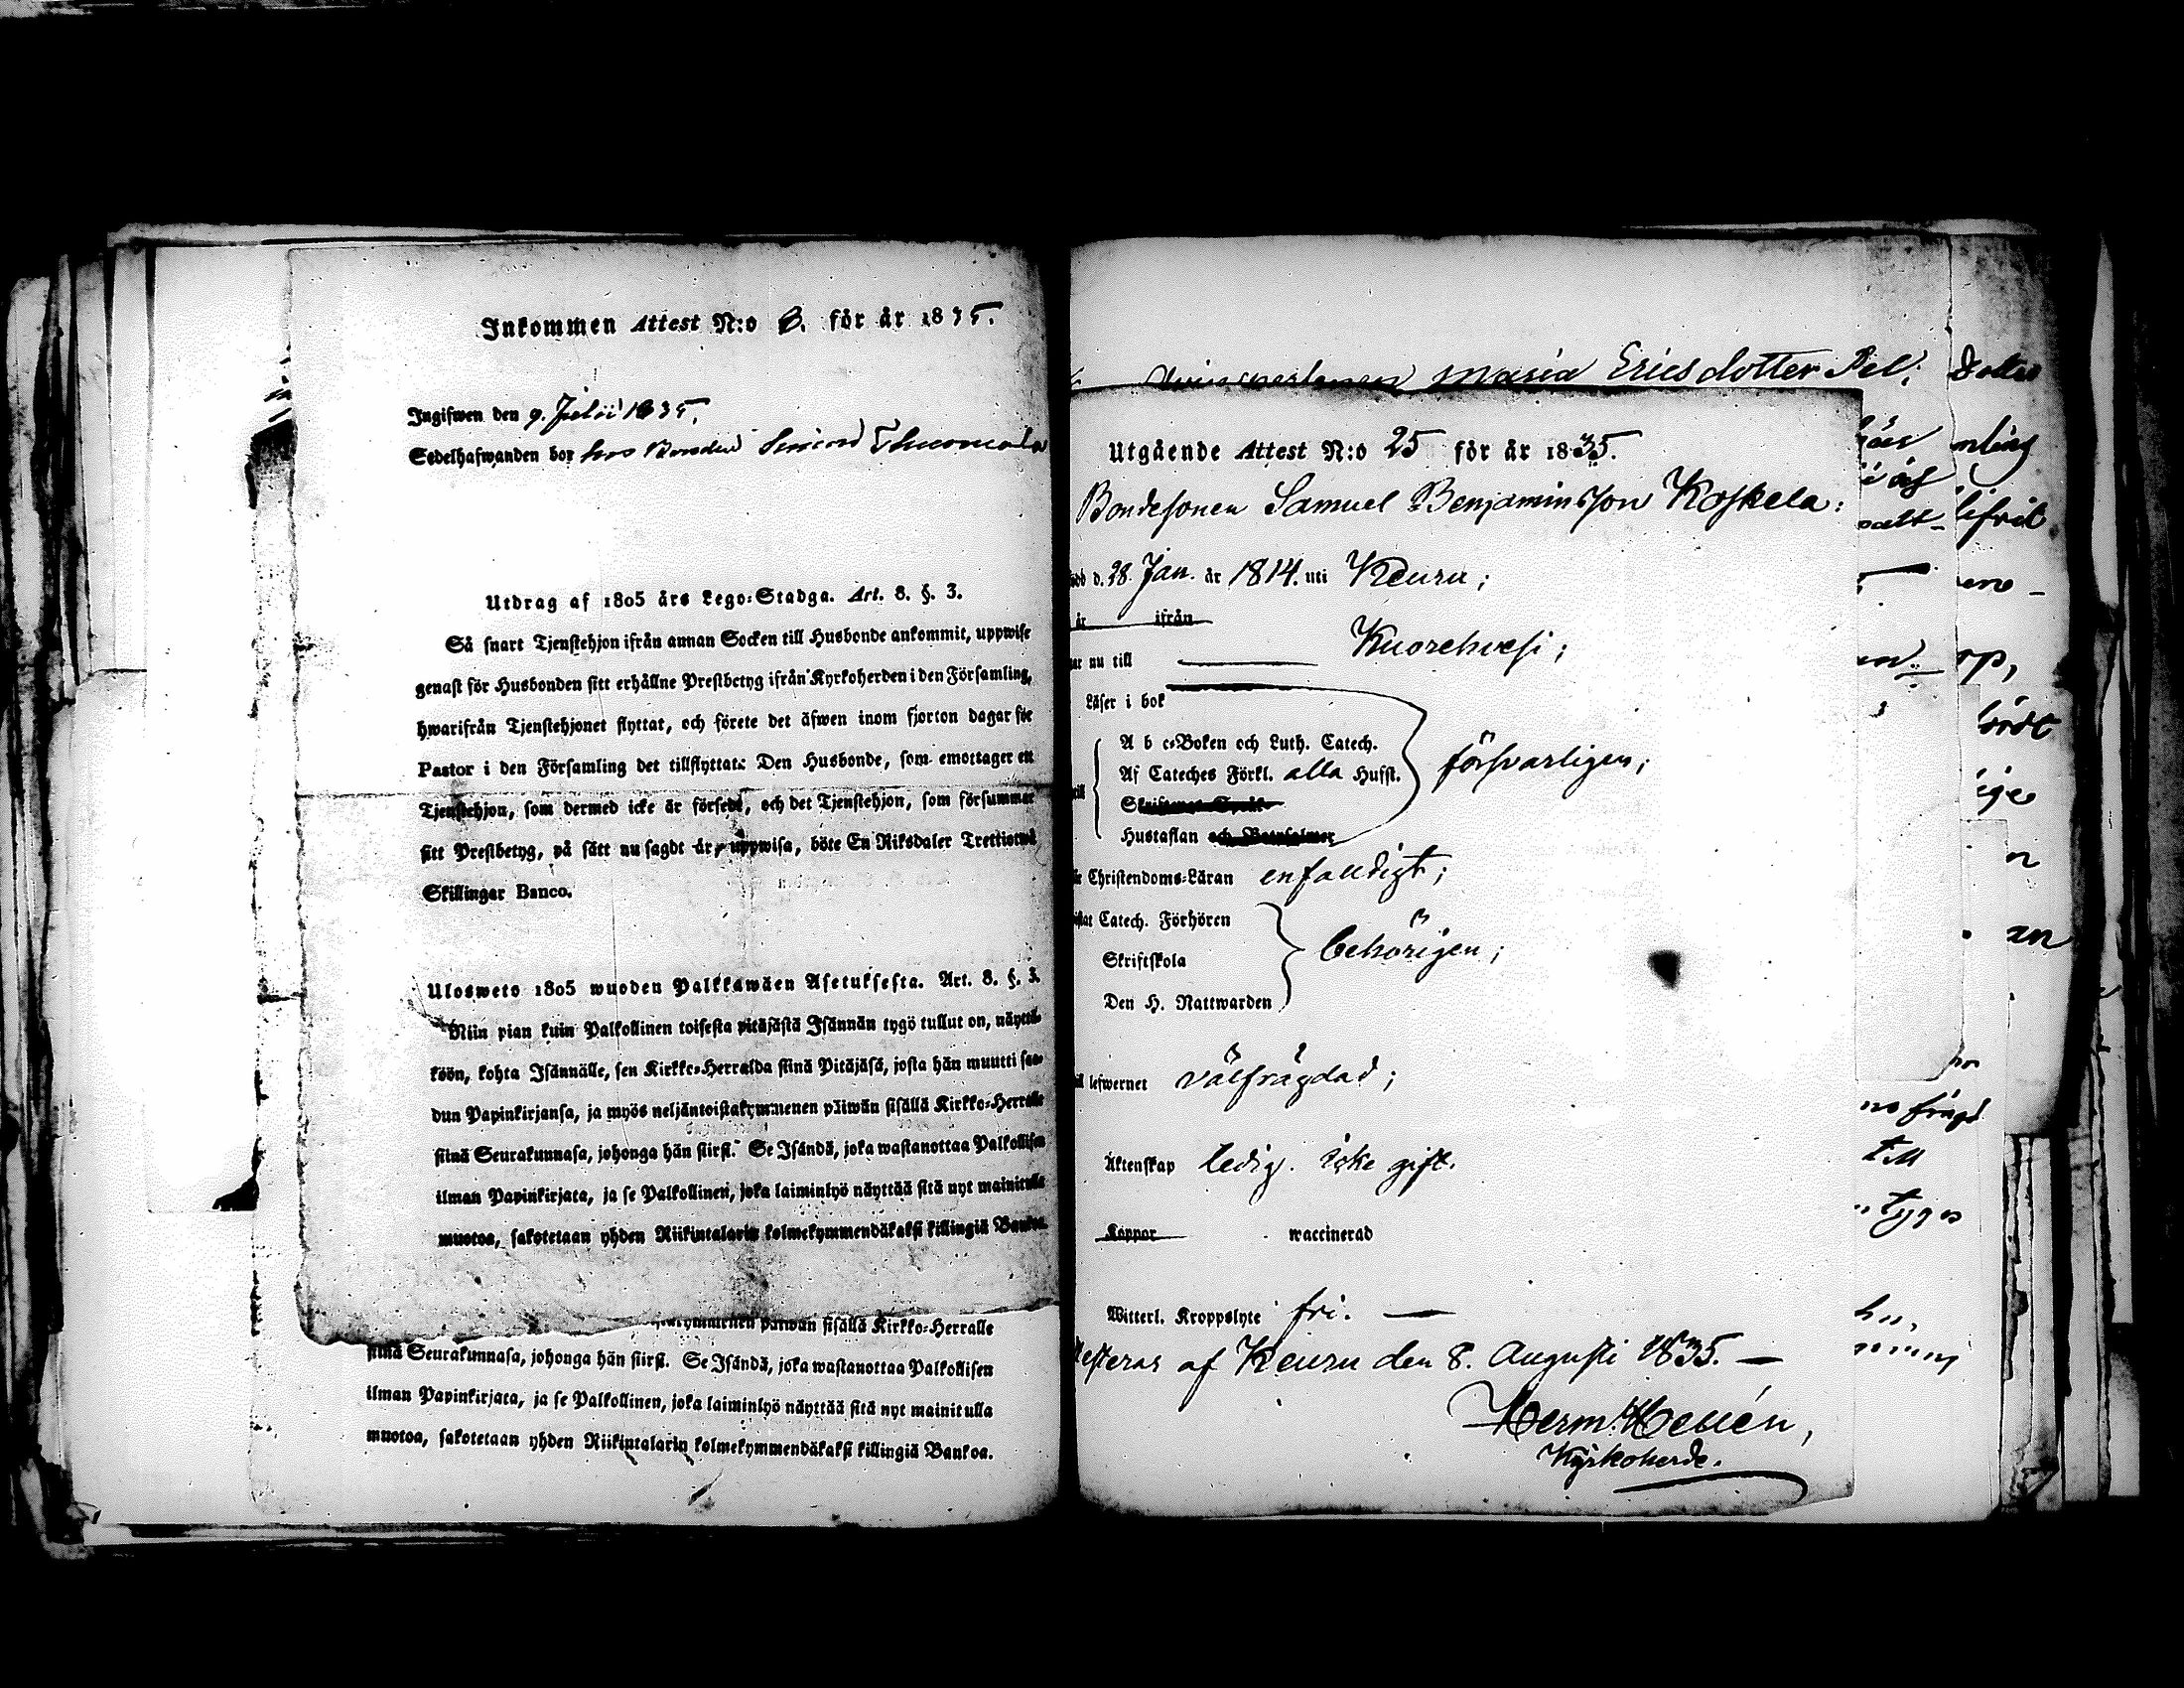 Inkommen Attest N:o 8. för år 1835.
Ingifwen den 9. Julii 1835.
Sedelhafwanden bor hos Bonden Simon Thuomala
Utdrag af 1805 års Lego-Stadga. Art. 8. §. 3.
Så snart Tjenstehjon ifrån annan Socken till Husbonde ankommit, uppwise
genast för Husbonden sitt erhållne Prestbetyg ifrån Kyrkoherden i den Församling,
hwarifrån Tjenstehjonet flyttat, och förete det äfwen inom fjorton dagar för
Pastor i den Församling det tillflyttat: Den Husbonde, som emottager ett
Tjenstehjon, som dermed icke är försedt, och det Tjenstehjon, som försummar
sitt Prestbetyg, på sätt nu sagdt är, uppwisa, böte En Riksdaler Trettiotwå
Skillingar Banco.
Ulosweto 1805 wuoden Palkkawäen Asetuksesta. Art. 8. §. 3.
Niin pian kuin Palkollinen toisesta pitäjästä Isännän tygö tullut on, näyttä-
köön, kohta Isännälle, sen Kirkko-Herralda siinä Pitäjäsä, josta hän muutti saa-
dun Papinkirjansa, ja myös neljäntoistakymmenen päiwän sisällä Kirkko-Herralle
siinä Seurakunnasa, johonga hän siirst. Se Isändä, joka wastanottaa Palkollisen
ilman Papinkirjata, ja se Palkollinen, joka laiminlyö näyttää sitä nyt mainitulla
muotoa, sakotetaan yhden Riikintalarin kolmekymmendäkaksi killingiä Bankoa.
päiwän sisällä Kirkko-Herralle
siinä Seurakunnasa, johonga hän siirst. Se Isändä, joka wastanottaa Palkollisen
ilman Papinkirjata, ja se Palkollinen, joka laiminlyö näyttää sitä nyt mainitulla
muotoa, sakotetaan yhden Riikintalarin kolmekymmendäkaksi killingiä Bankoa.
Maria Ericsdotter Pel;
Utgående Attest N:o 25 för år 1835.
Bondesonen Samuel Benjaminsson Koskela:
d. 28. Jan. år 1814. uti Keuru;
år ifrån
nu till Kuorehvesi;
Läser i bok
A b c-Boken och Luth. Catech.
Af Cateches Förkl. alla Hufst. försvarligen;
Hustaflan
Christendoms-Läran enfaldigt;
Catech. Förhören
Skriftskola behörigen;
Den H. Nattwarden
till lefwernet välfrägdad;
Äktenskap ledig. icke gift.
Koppor waccinerad
Witterl. Kroppslyte fri.
af Keuru den 8. Augusti 1835.
Herm. Hellén,
Kyrkoherde.